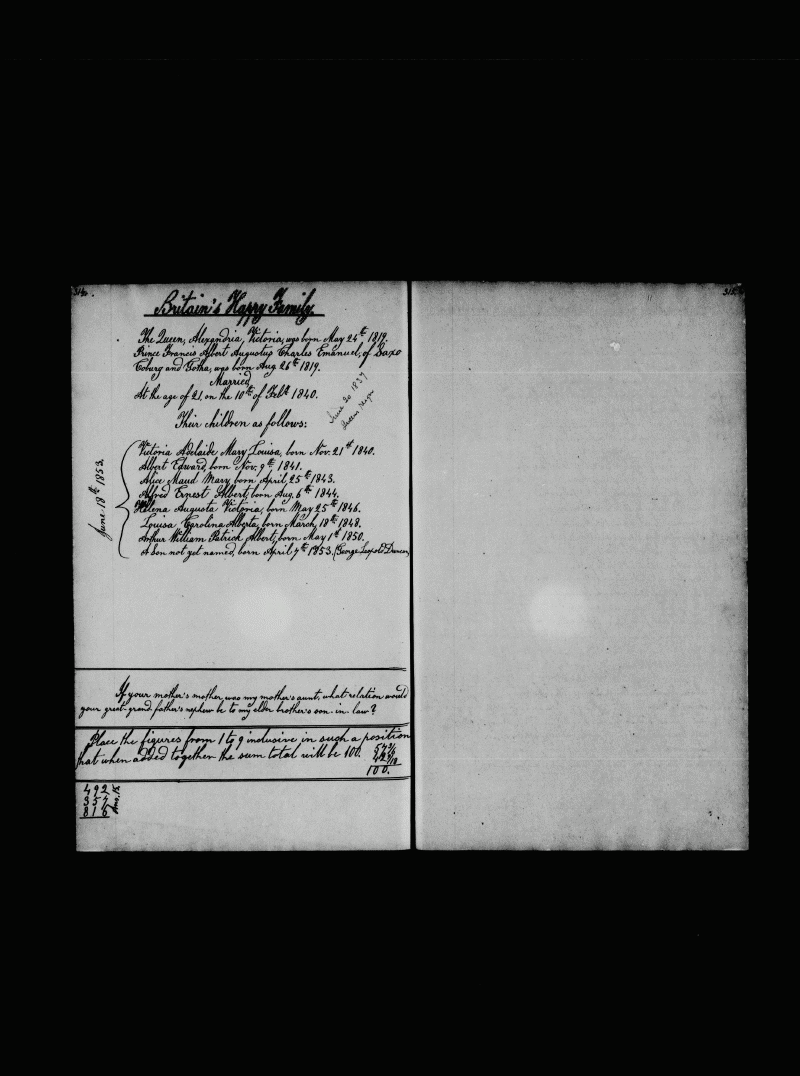 314.
Britain's Happy Family.
The Queen, Alexandria, Victoria, was born May 24th 1819.
Prince Francis Albert Augustus Charles Emanuel, of Saxo
Coburg and Gotha, was born Aug 26th 1819.
Married
At the age of 21, on the 10th of Feby. 1840.
June 20 1837
Queen reign
Their children as follows:
June 18th 1853.
Victoria Adelaide Mary Louisa, born Nov. 21st 1840.
Albert Edward, born Nov. 9th 1841.
Alice Maud Mary, born April 25th 1843.
Alfred Ernest Albert, born Aug. 6th 1844.
Helena Augusta Victoria, born May 25th 1846.
Louisa Carolina Alberta, born March 18th 1848.
Arthur William Patrick Albert, born May 1st 1850.
A son not yet named, born April 7th 1853. (George Leopold Duncan)
If your mother's mother was my mother's aunt, what relation would
your great-grand father's nephew be to my elder brother's son-in-law?
Place the figures from 1 to 9 inclusive in such a position
that when added together the sum total will be 100.
100.
492
357
816
Ans. 15
315